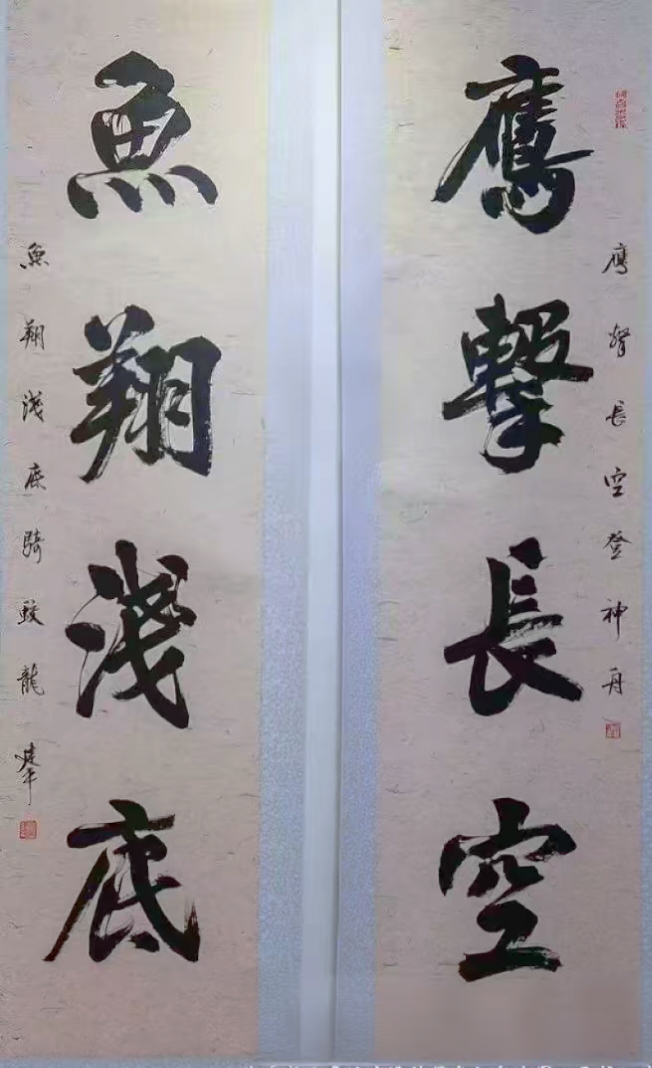 鹰擊長空
鹰擊長空登神舟
魚翔淺底
魚翔淺底騎蛟龍
建平